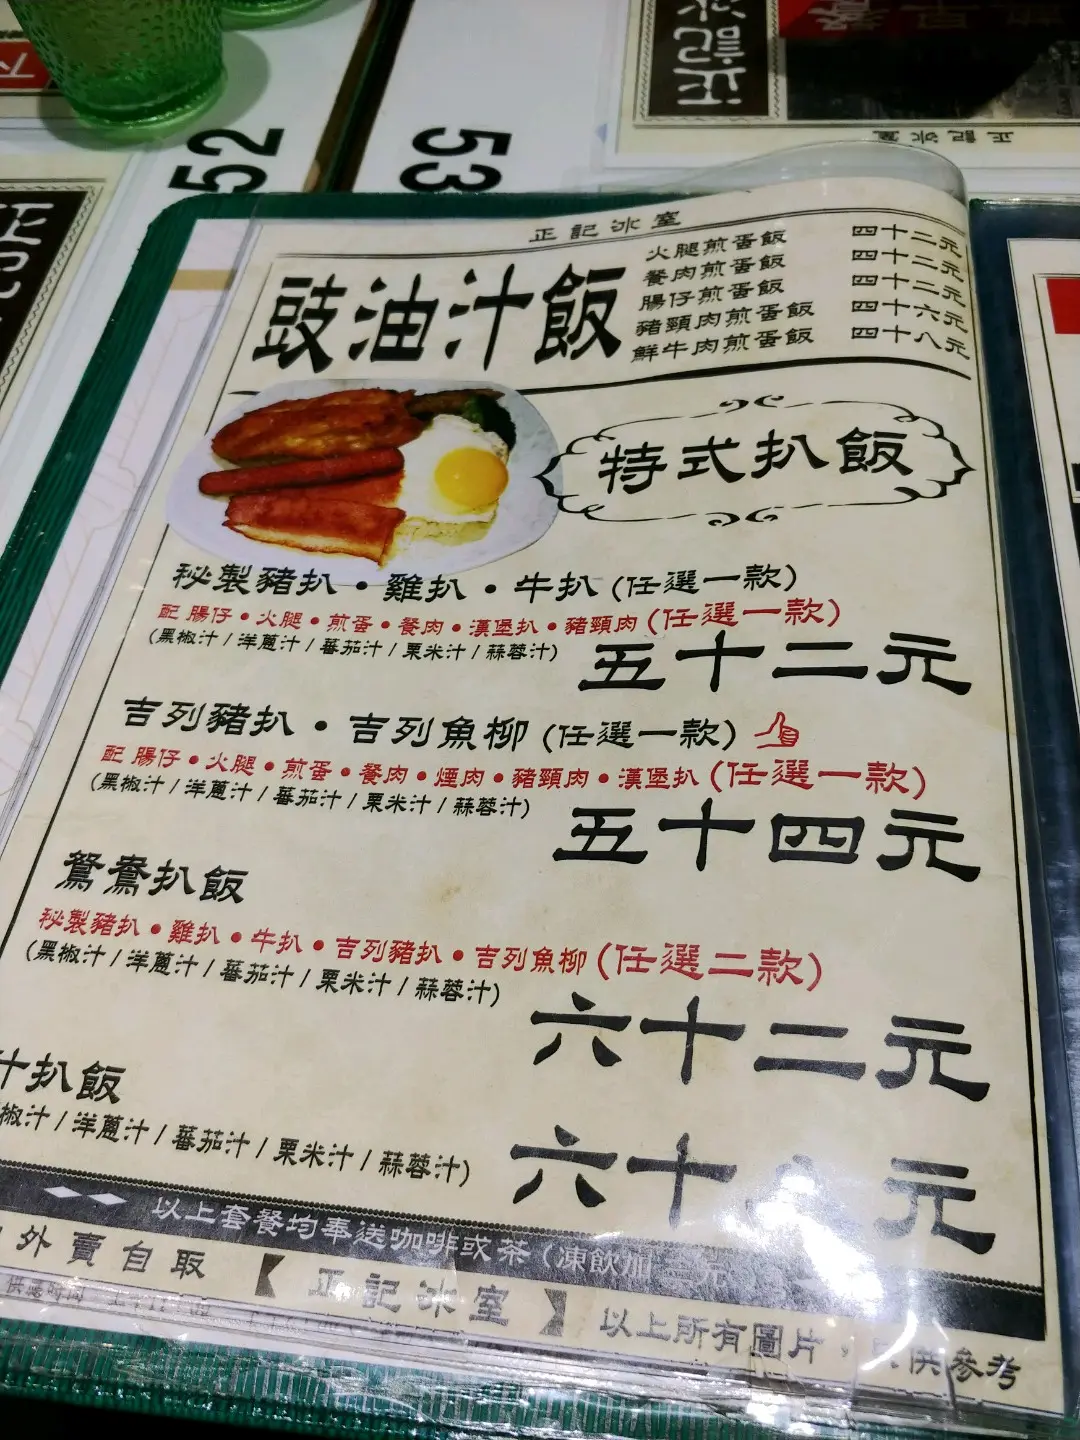 52
35
正記冰
正記冰室
正記冰室
豉油汁飯
火腿煎蛋飯 四十二元
餐肉煎蛋飯 四十二元
腸仔煎蛋飯 四十二元
豬頸肉煎蛋飯 四十六元
鮮牛肉煎蛋飯 四十八元
特式扒飯
秘製豬扒・雞扒・牛扒 (任選一款)
配 腸仔・火腿・煎蛋・餐肉・漢堡扒・豬頸肉 (任選一款)
(黑椒汁 / 洋蔥汁 / 蕃茄汁 / 粟米汁 / 蒜蓉汁)
五十二元
吉列豬扒・吉列魚柳 (任選一款)
配 腸仔・火腿・煎蛋・餐肉・煙肉・豬頸肉・漢堡扒 (任選一款)
(黑椒汁 / 洋蔥汁 / 蕃茄汁 / 粟米汁 / 蒜蓉汁)
五十四元
鴛鴦扒飯
秘製豬扒・雞扒・牛扒・吉列豬扒・吉列魚柳 (任選二款)
(黑椒汁 / 洋蔥汁 / 蕃茄汁 / 粟米汁 / 蒜蓉汁)
六十二元
汁扒飯
椒汁 / 洋蔥汁 / 蕃茄汁 / 粟米汁 / 蒜蓉汁)
六十 元
以上套餐均奉送咖啡或茶 (凍飲加三元
外賣自取
【正記冰室】
以上所有圖片，只供參考
供應時間